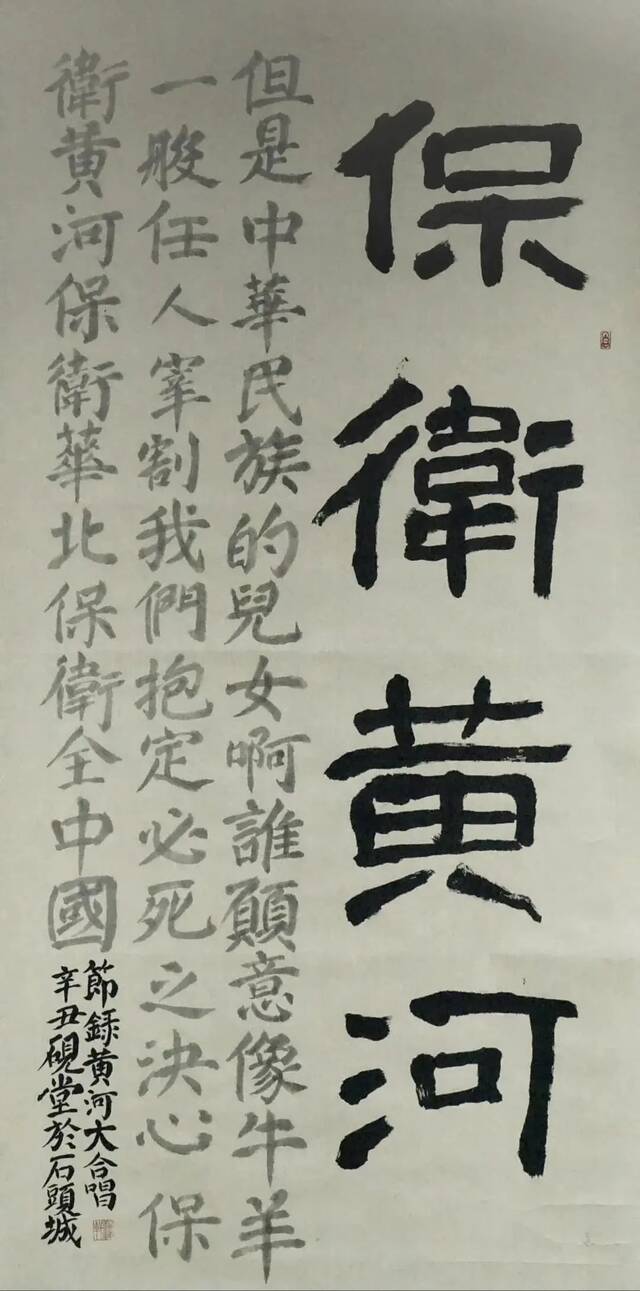 保衛黃河
但是中華民族的兒女啊誰願意像牛羊
一般任人宰割我們抱定必死之決心保
衛黃河保衛華北保衛全中國
節録黃河大合唱
辛丑硯堂於石頭城